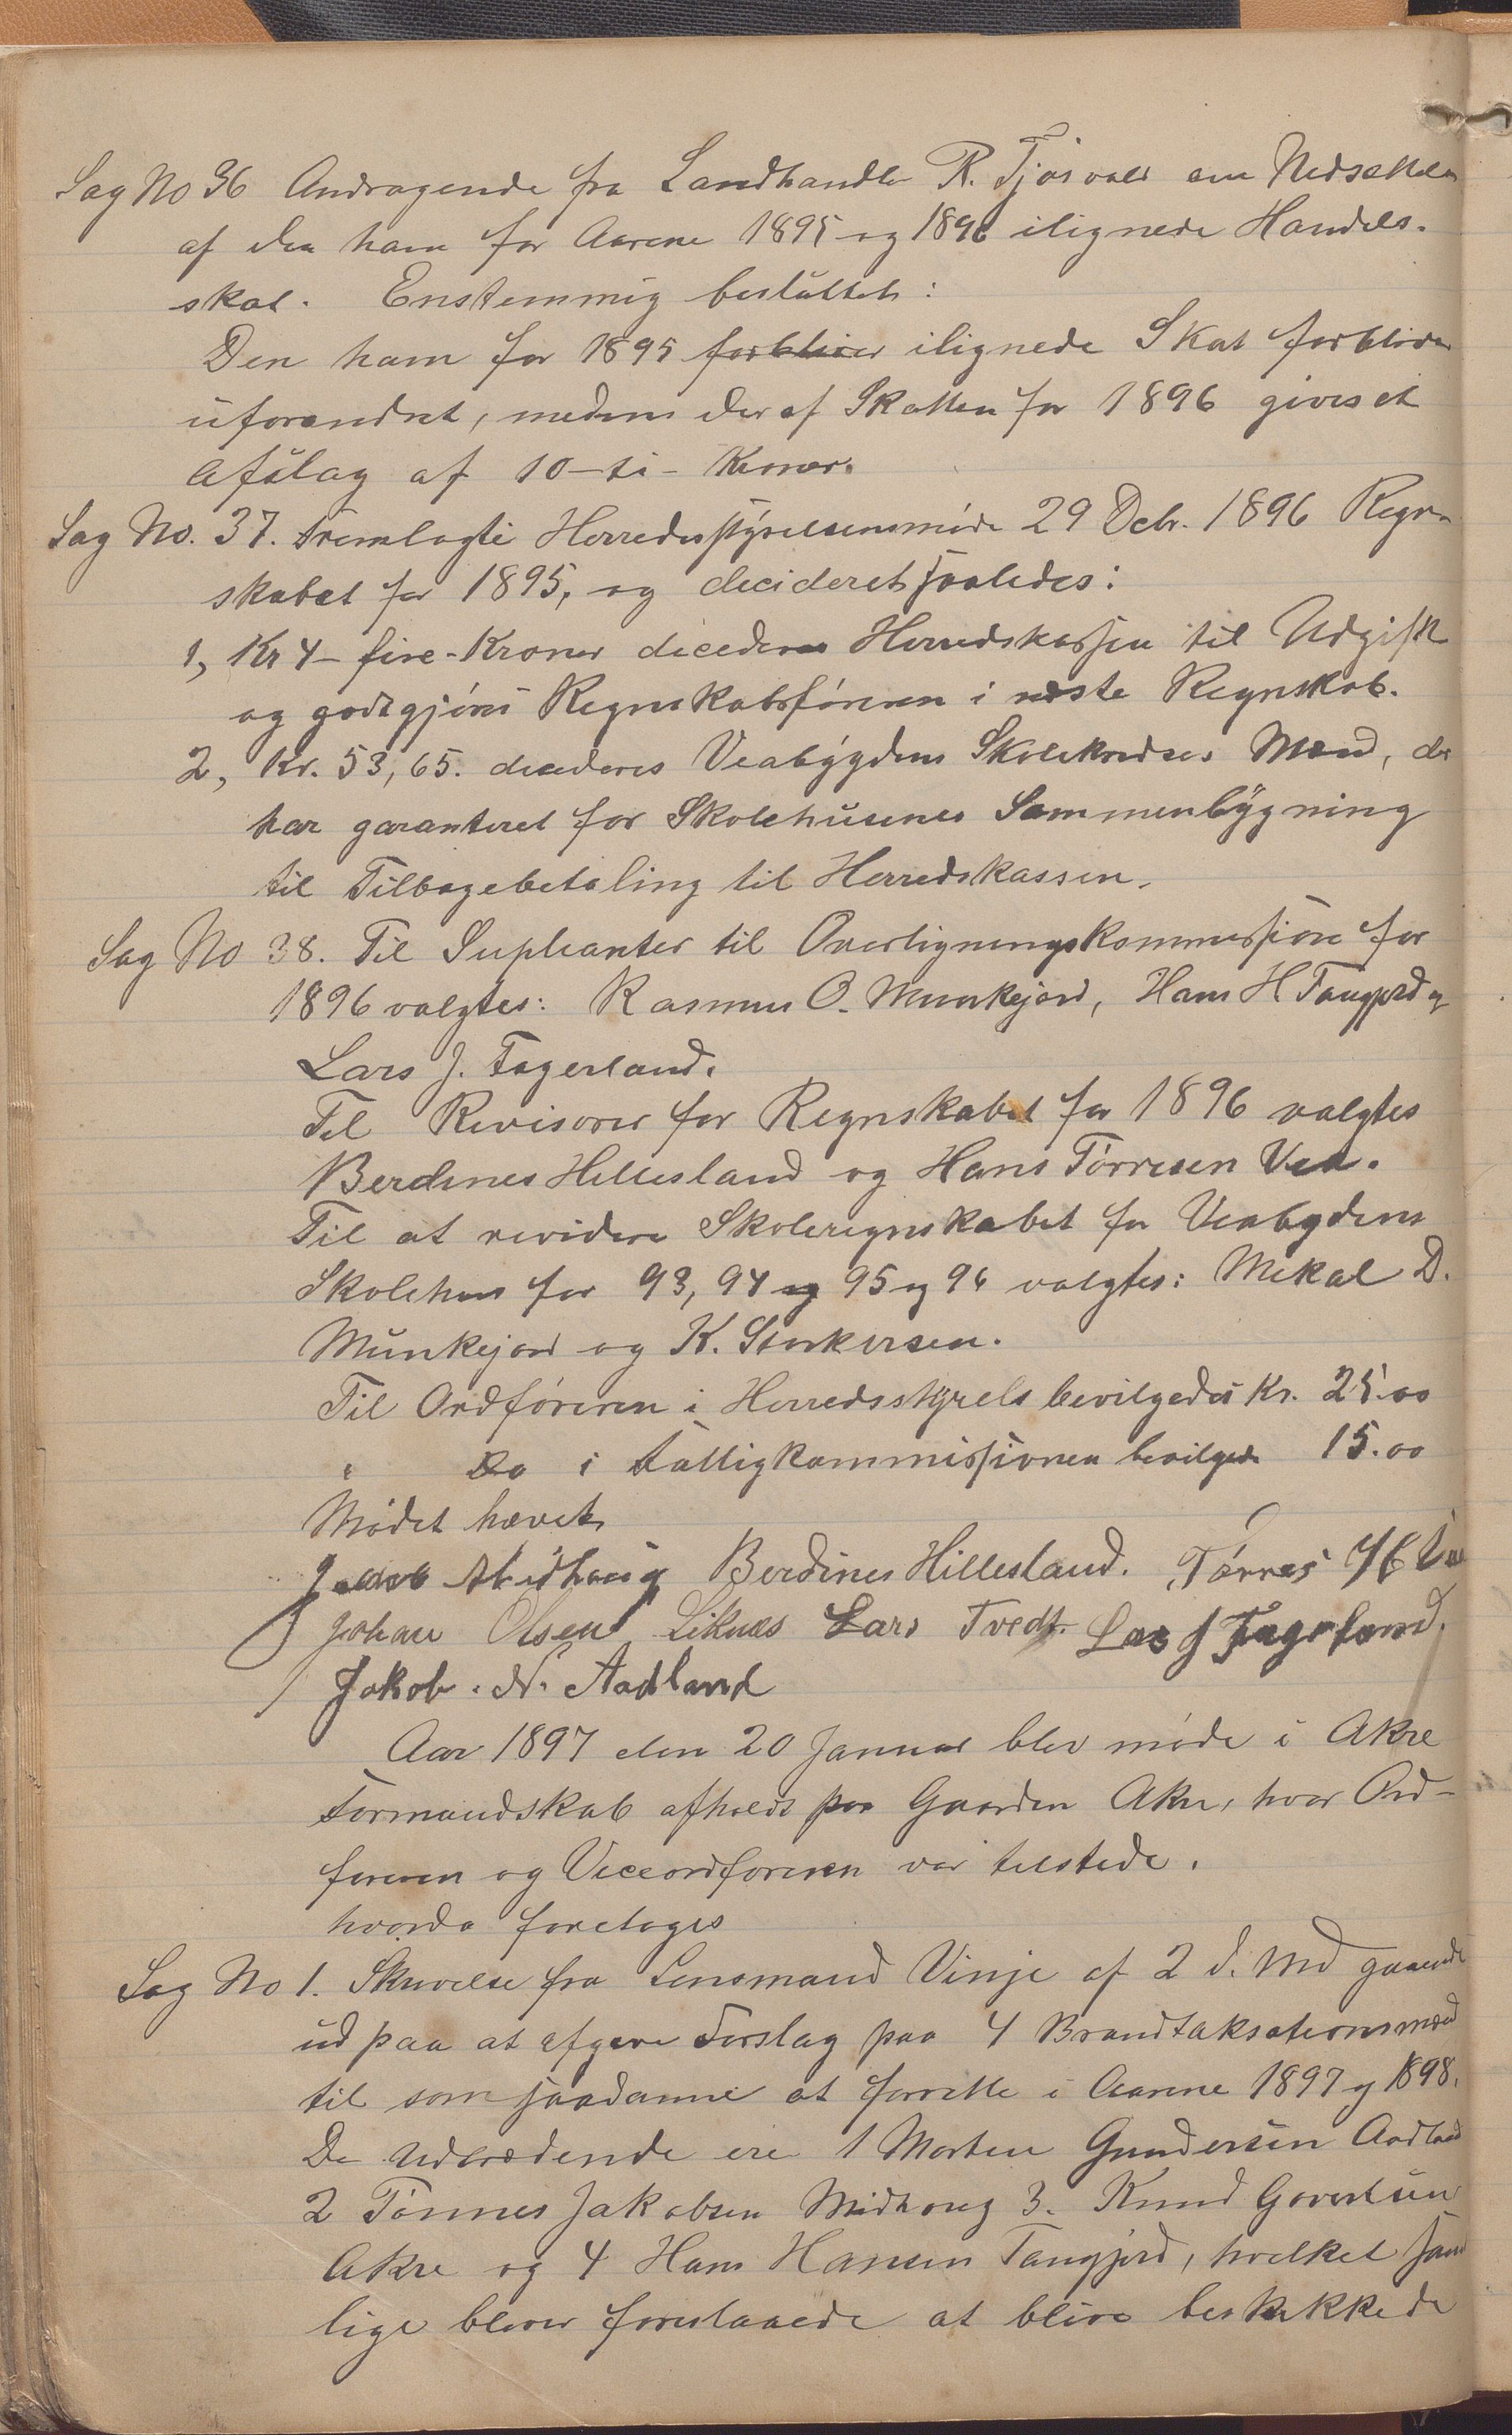 Sag No 36 Andragende fra Landhandler R. Tjøsvold om Nedsættelse
af den ham for Aarene 1895 og 1896 ilignede Handels-
skat. Enstemmig besluttet:
Den ham for 1895 forbliver ilignede Skat forbliver
uforandret, medens der af Skatten for 1896 gives et
Afslag af 10 - ti - Kroner.
Sag No. 37. Fremlagte Herredsstyrelsensmøde 29 Debr. 1896 Regn-
skabet for 1895, og decideret saaledes:
1, Kr 4 - fire - Kroner decideres Herredskassen til Udgift
og godtgjøres Regnskabsføreren i næste Regnskab.
2, Kr. 53,65. decideres Veabygdens Skolekredses Mænd, der
har garanteret for Skolehusenes Sammenbygning
til Tilbagebetaling til Herredskassen.
Sag No 38. Til Supleanter til Overligningskommission for
1896 valgtes: Rasmus O. Munkejord, Hans H Tangjerd og
Lars J. Fagerland.
Til Revisorer for Regnskabet for 1896 valgtes
Berdines Hillesland og Hans Tørresen Vea.
Til at revidere Skoleregnskabet for Veabygdens
Skolehus for 93, 94 og 95 og 96 valgtes: Mikal D.
Munkejord og K. Storkersen.
Til Ordføreren i Herredsstyrels bevilgedes Kr. 25.00
" Do i Fattigkommissionen bevilgede 15.00
Mødet hævet
Jakob Midhaug Berdines Hillesland. Tørres H Vea
Johan Olsen Liknes Lars Tvedt Lars J Fagerland.
Jakob. N. Aadland
Aar 1897 den 20 Januar blev møde i Akre
Formandskab afholdt paa Gaarden Akre, hvor Ord-
føreren og Viceordføreren var tilstede.
hvorda foretoges
Sag No 1. Skrivelse fra Lensmand Vinje af 2 d. Md gaaende
ud paa at afgive Forslag paa 4 Brandtaksationsmænd
til som saadanne at forrette i Aarene 1897 og 1898.
De Udtrædende ere 1 Morten Gundersen Aadland
2 Tønnes Jakobsen Midhaug 3. Knud Govertsen
Akre og 4 Hans Hansen Tangjerd, hvilket sam
lige bliver foreslaaede at blive beskikkede